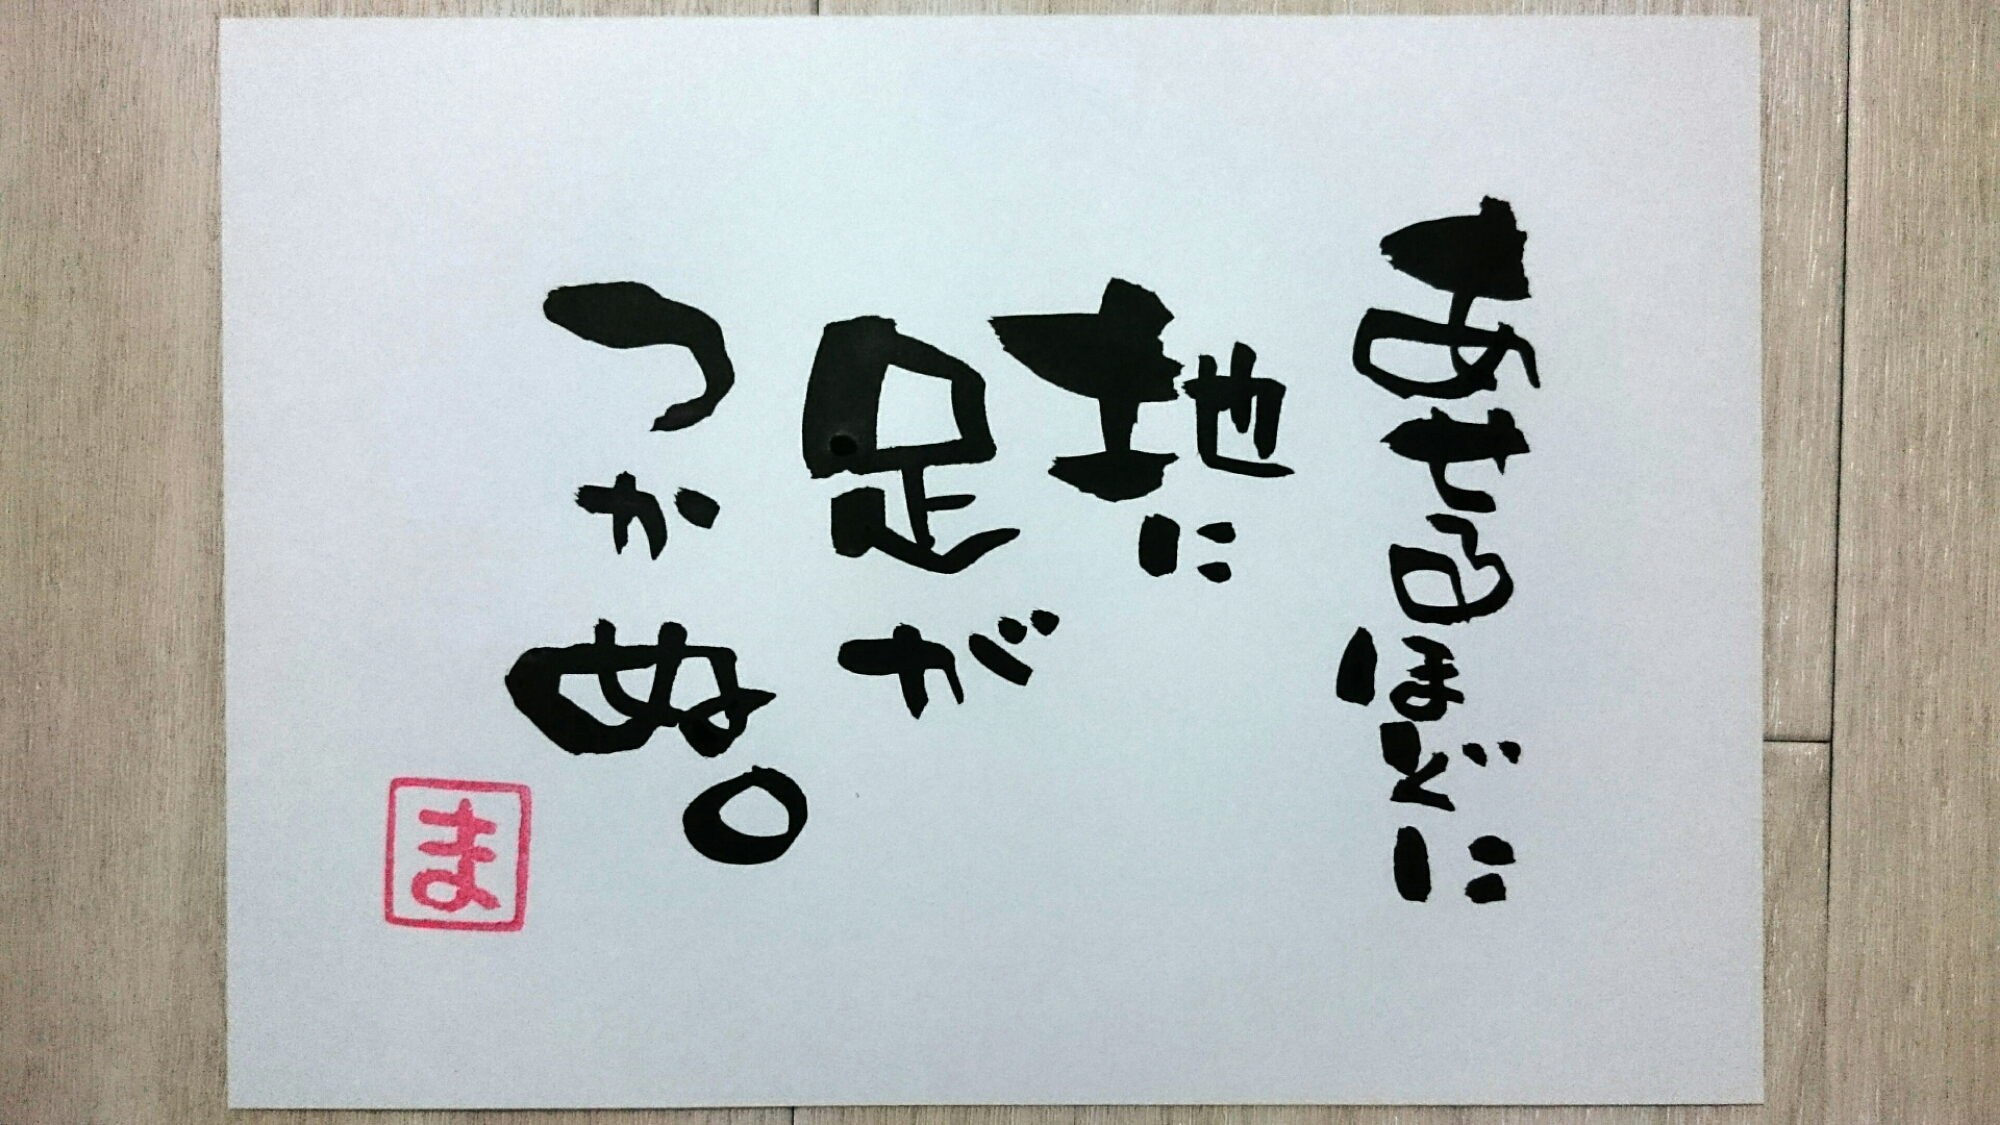 あせるほどに
地に
足が
つかぬ。
ま